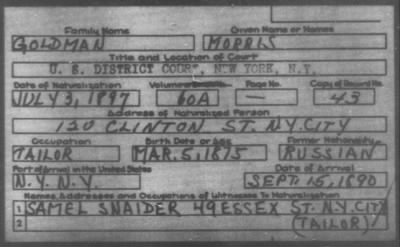 Family Name Given Name or Names
GOLDMAN MORRIS
Title and Location of Court
U. S. DISTRICT COURT, NEW YORK, N.Y.
Date of Naturalization Volume or Bundle No. Page No. Copy of Record No.
JULY 3, 1897 60A — 43
Address of Naturalized Person
120 CLINTON ST. N.Y. CITY
Occupation Birth Date or Age Former Nationality
TAILOR MAR. 5, 1875 RUSSIAN
Port of Arrival in the United States Date of Arrival
N.Y. N.Y. SEPT. 15, 1890
Names, Addresses and Occupations of Witnesses To Naturalization
1 SAMEL SNAIDER 49 ESSEX ST. N.Y. CITY
2 (TAILOR)